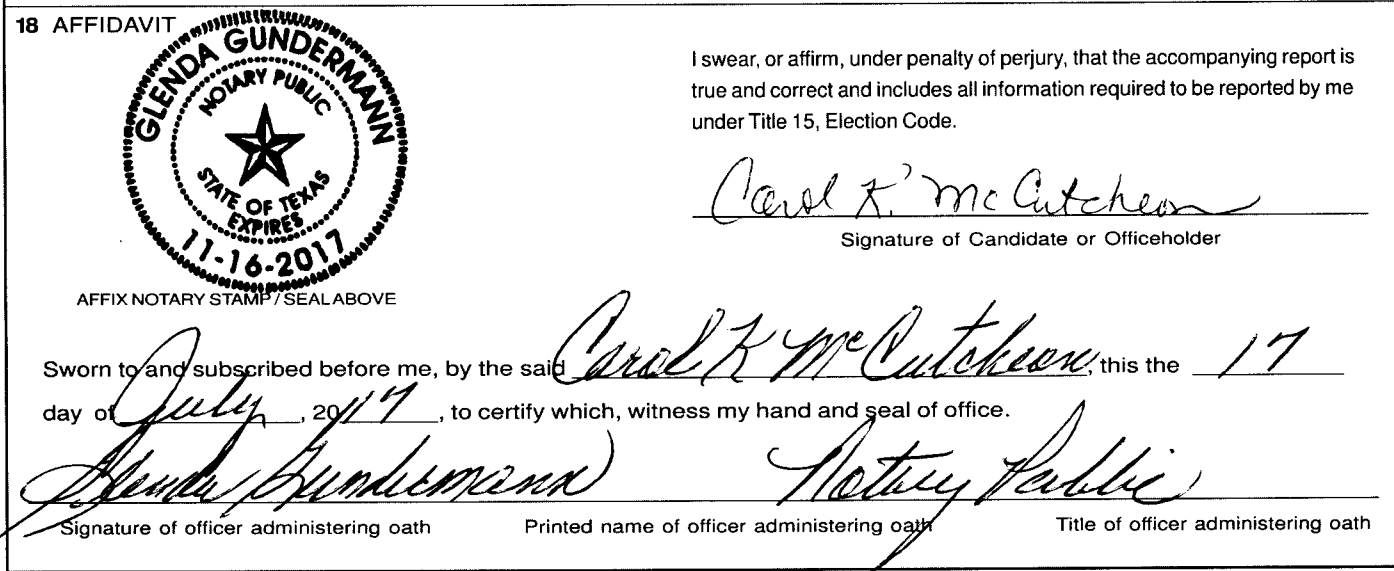 18 AFFIDAVIT
GLENDA GUNDERMANN
NOTARY PUBLIC
STATE OF TEXAS
EXPIRES
11-16-2017
AFFIX NOTARY STAMP / SEAL ABOVE
I swear, or affirm, under penalty of perjury, that the accompanying report is
true and correct and includes all information required to be reported by me
under Title 15, Election Code.
Carol K. McCutcheon
Signature of Candidate or Officeholder
Sworn to and subscribed before me, by the said Carol K McCutcheon, this the 17
day of July, 2017, to certify which, witness my hand and seal of office.
Glenda Gundermann Notary Public
Signature of officer administering oath Printed name of officer administering oath Title of officer administering oath